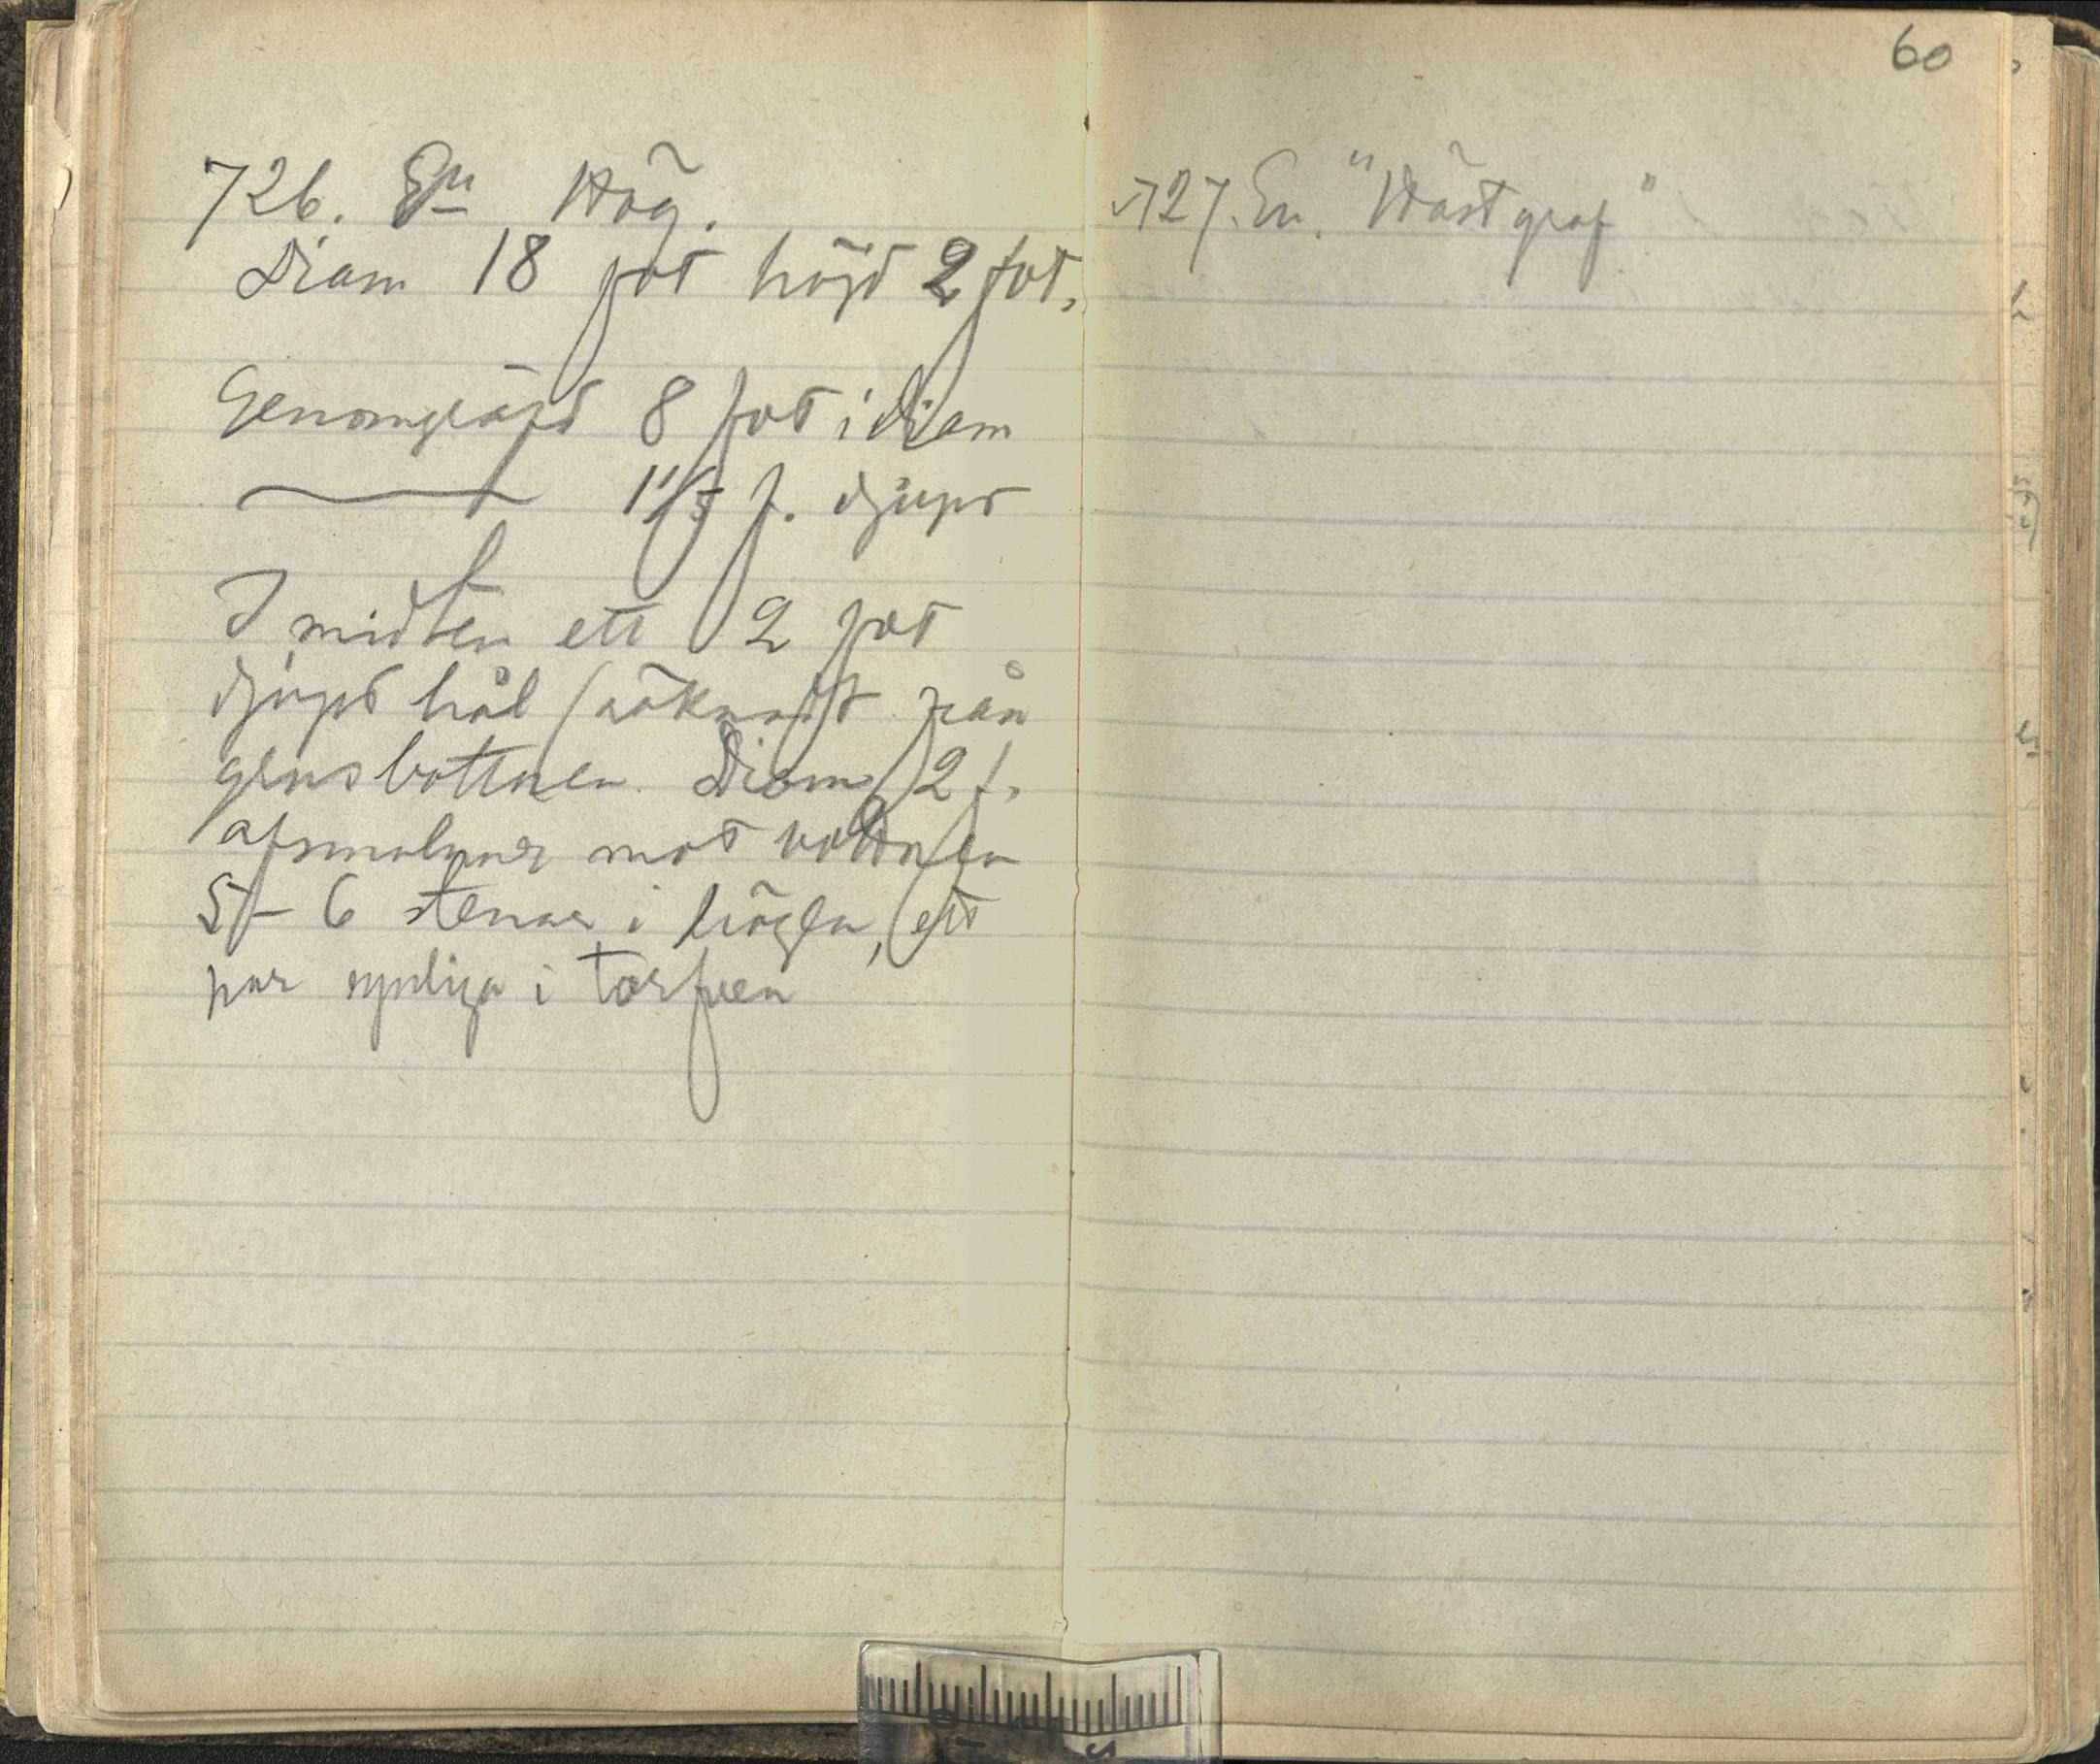 726. En Hög.
Diam 18 fot höjd 2 fot.
Genomgräfd 8 fot i diam
1 1/3 f. djupt
I midten ett 2 fot
djupt hål (räknadt från
grusbottnen. Diam 2 f.
afsmalnar mot bottnen
5 - 6 stenar i högen, ett
par synliga i torfven
60
727. En. "Hästgraf"